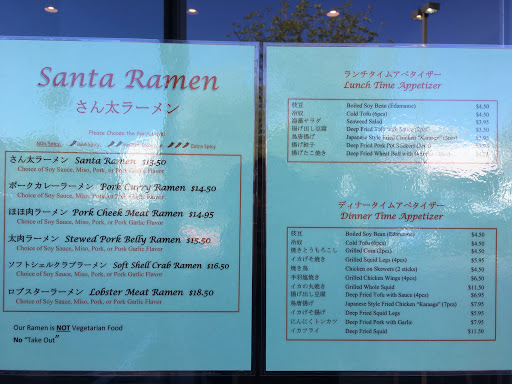 Santa Ramen
さん太ラーメン
Please Choose the
No Spice
Extra Spicy
さん太ラーメン Santa Ramen $13.50
Choice of Soy Sauce, Miso, Pork, or Pork Garlic Flavor
ポークカレーラーメン Pork Curry Ramen $14.50
Choice of Soy Sauce, Miso, Pork, or Pork Garlic Flavor
ほほ肉ラーメン Pork Cheek Meat Ramen $14.95
Choice of Soy Sauce, Miso, Pork, or Pork Garlic Flavor
太肉ラーメン Stewed Pork Belly Ramen $15.50
Choice of Soy Sauce, Miso, Pork, or Pork Garlic Flavor
ソフトシェルクラブラーメン Soft Shell Crab Ramen $16.50
Choice of Soy Sauce, Miso, Pork, or Pork Garlic Flavor
ロブスターラーメン Lobster Meat Ramen $18.50
Choice of Soy Sauce, Miso, Pork, or Pork Garlic Flavor
Our Ramen is NOT Vegetarian Food
No "Take Out"
ランチタイムアペタイザー
Lunch Time Appetizer
枝豆 Boiled Soy Bean (Edamame) $4.50
冷奴 Cold Tofu (6pcs) $4.50
海藻サラダ Seaweed Salad $3.95
揚げ出し豆腐 Deep Fried Tofu with Sauce
鳥唐揚げ Japanese Style Fried Chicken "Karaage"
揚げ餃子 Deep Fried Pork Pot Stickers
揚げたこ焼き Deep Fried Wheat Ball with
ディナータイムアペタイザー
Dinner Time Appetizer
枝豆 Boiled Soy Bean (Edamame) $4.50
冷奴 Cold Tofu (6pcs) $4.50
焼きとうもろこし Grilled Corn (2pcs) $4.50
イカげそ焼き Grilled Squid Legs (4pcs) $5.95
焼き鳥 Chicken on Skewers (2 sticks) $4.50
手羽塩焼き Grilled Chicken Wings (4pcs) $6.50
イカの丸焼き Grilled Whole Squid $11.50
揚げ出し豆腐 Deep Fried Tofu with Sauce (4pcs) $6.95
鳥唐揚げ Japanese Style Fried Chicken "Karaage" (7pcs) $7.95
イカげそ揚げ Deep Fried Squid Legs $5.95
にんにくトンカツ Deep Fried Pork with Garlic $7.95
イカフライ Deep Fried Squid $11.50